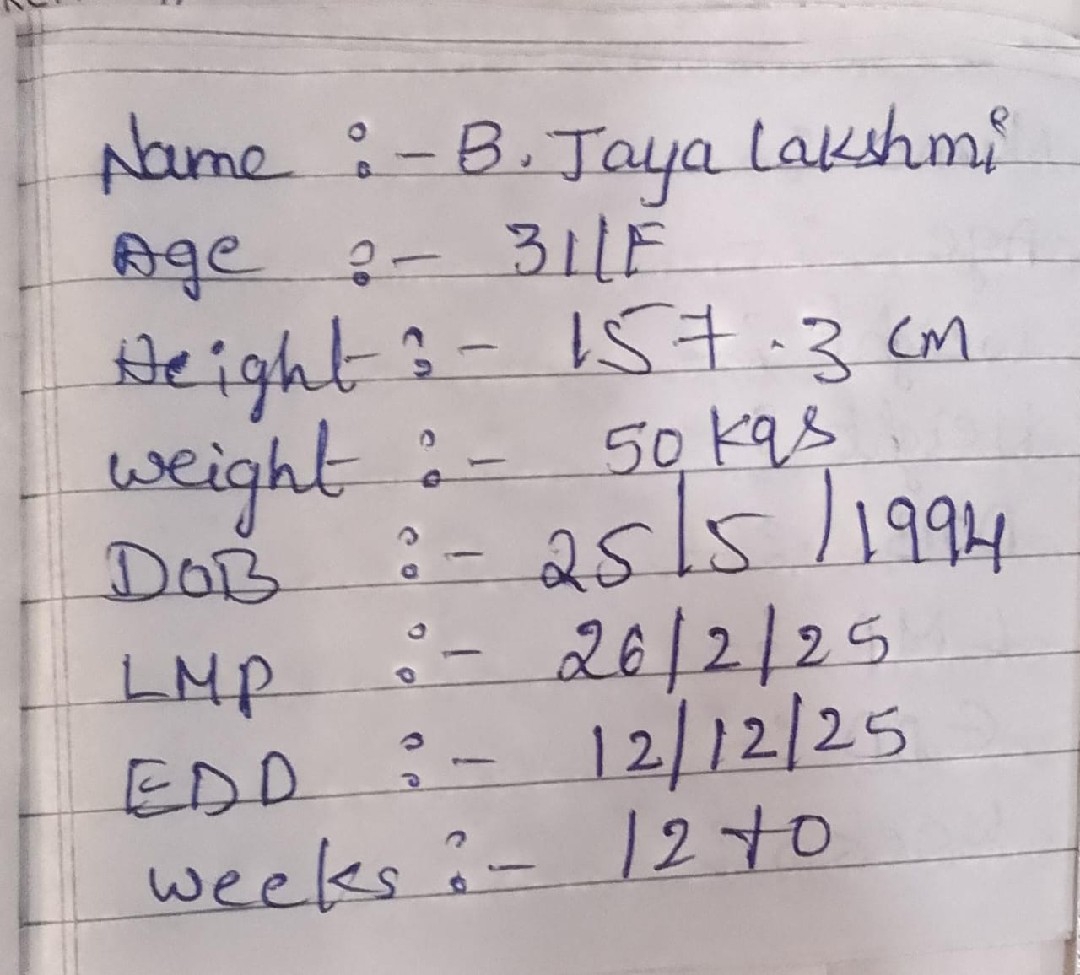 Name :- B. Jaya lakshmi
Age :- 31/F
Height :- 157.3 cm
weight :- 50 kgs
DOB :- 25/5/1994
LMP :- 26/2/25
EDD :- 12/12/25
weeks :- 12+0